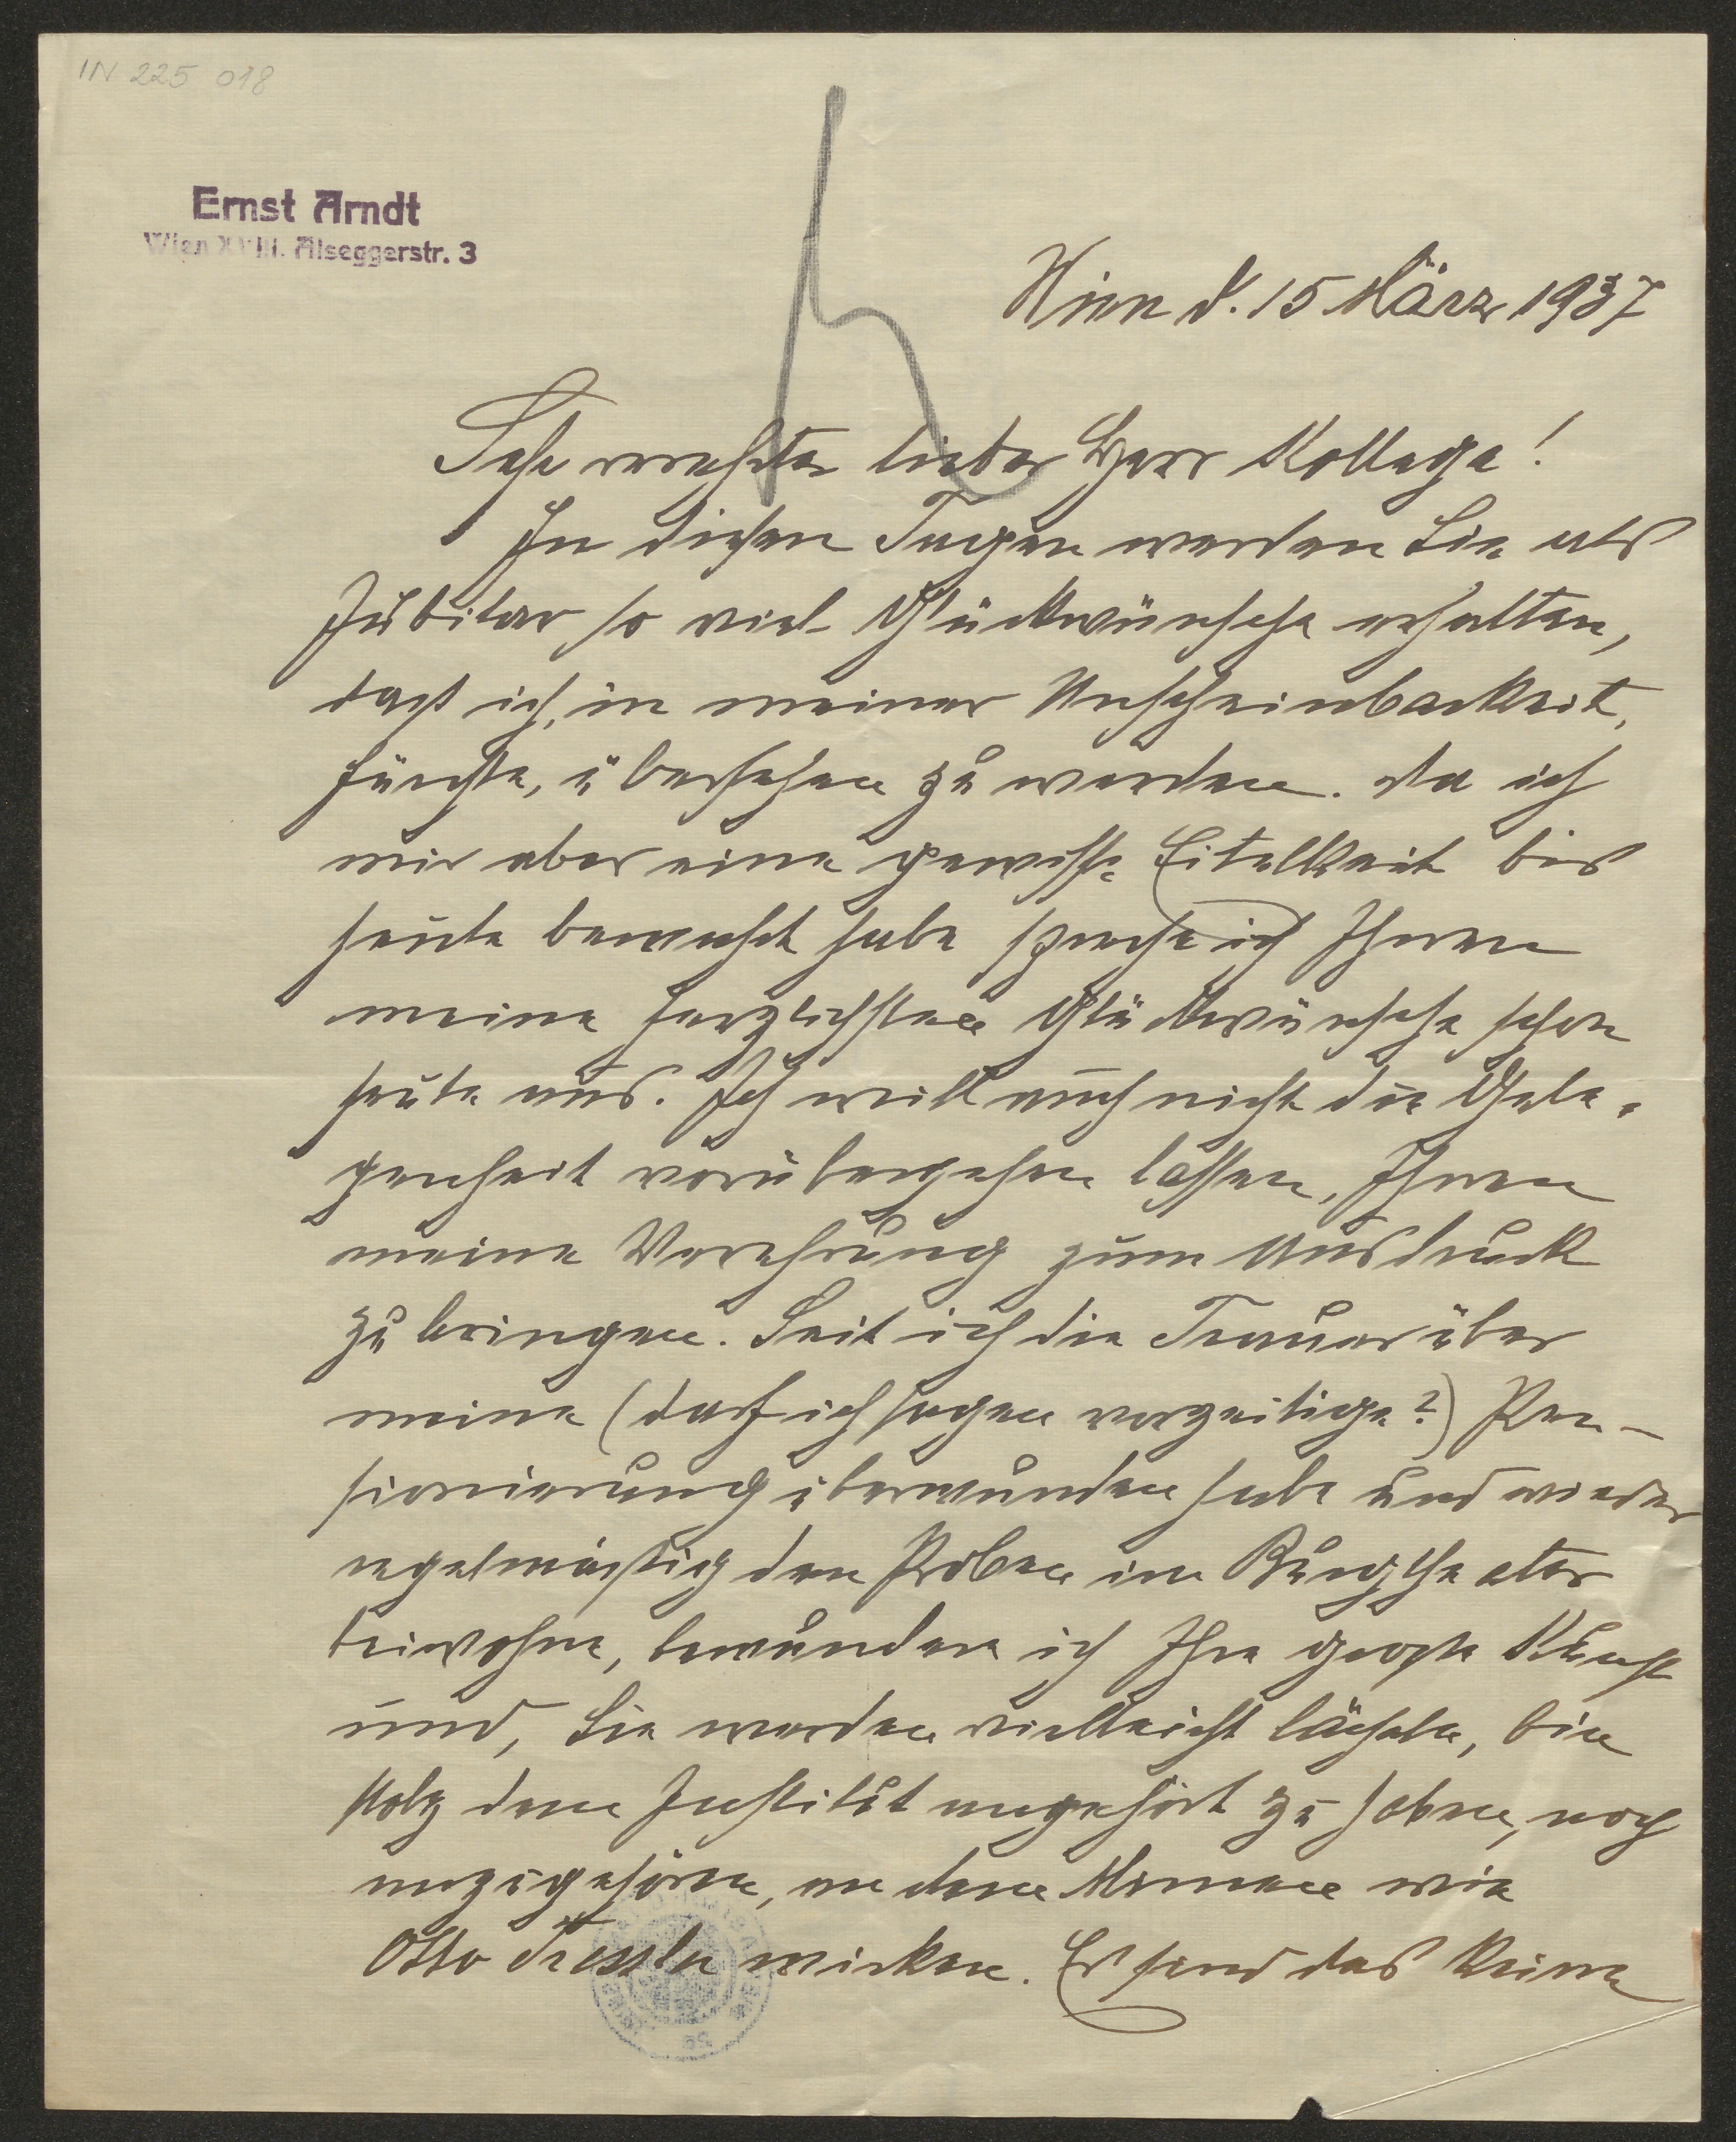 IN 225 018
Ernst Arndt
Wien XVIII. Alseggerstr. 3
Wien d. 15 März 1937
Sehr verehrter lieber Herr Kollege!
In diesen Tagen werden Sie als
Jubilar so viel Glückwünsche erhalten,
dass ich, in meiner Unscheinbarkeit,
fürchte, übersehen zu werden. Da ich
mir aber eine gewisse Eitelkeit bis
heute bewahrt habe spreche ich Ihnen
meine herzlichsten Glückwünsche schon
heute aus. Ich will auch nicht die Gele-
genheit vorübergehen lassen, Ihnen
meine Verehrung zum Ausdruck
zu bringen. Seit ich die Trauer über
meine (darf ich sagen vorzeitige?) Pen-
sionierung überwunden habe und wieder
regelmässig den Proben im Burgtheater
beiwohne, bewundere ich Ihre grosse Kunst
und, Sie werden vielleicht lächeln, bin
stolz dem Institut angehört zu haben, noch
anzugehören, an dem Männer wie
Otto Tressler wirken. Es sind das keine